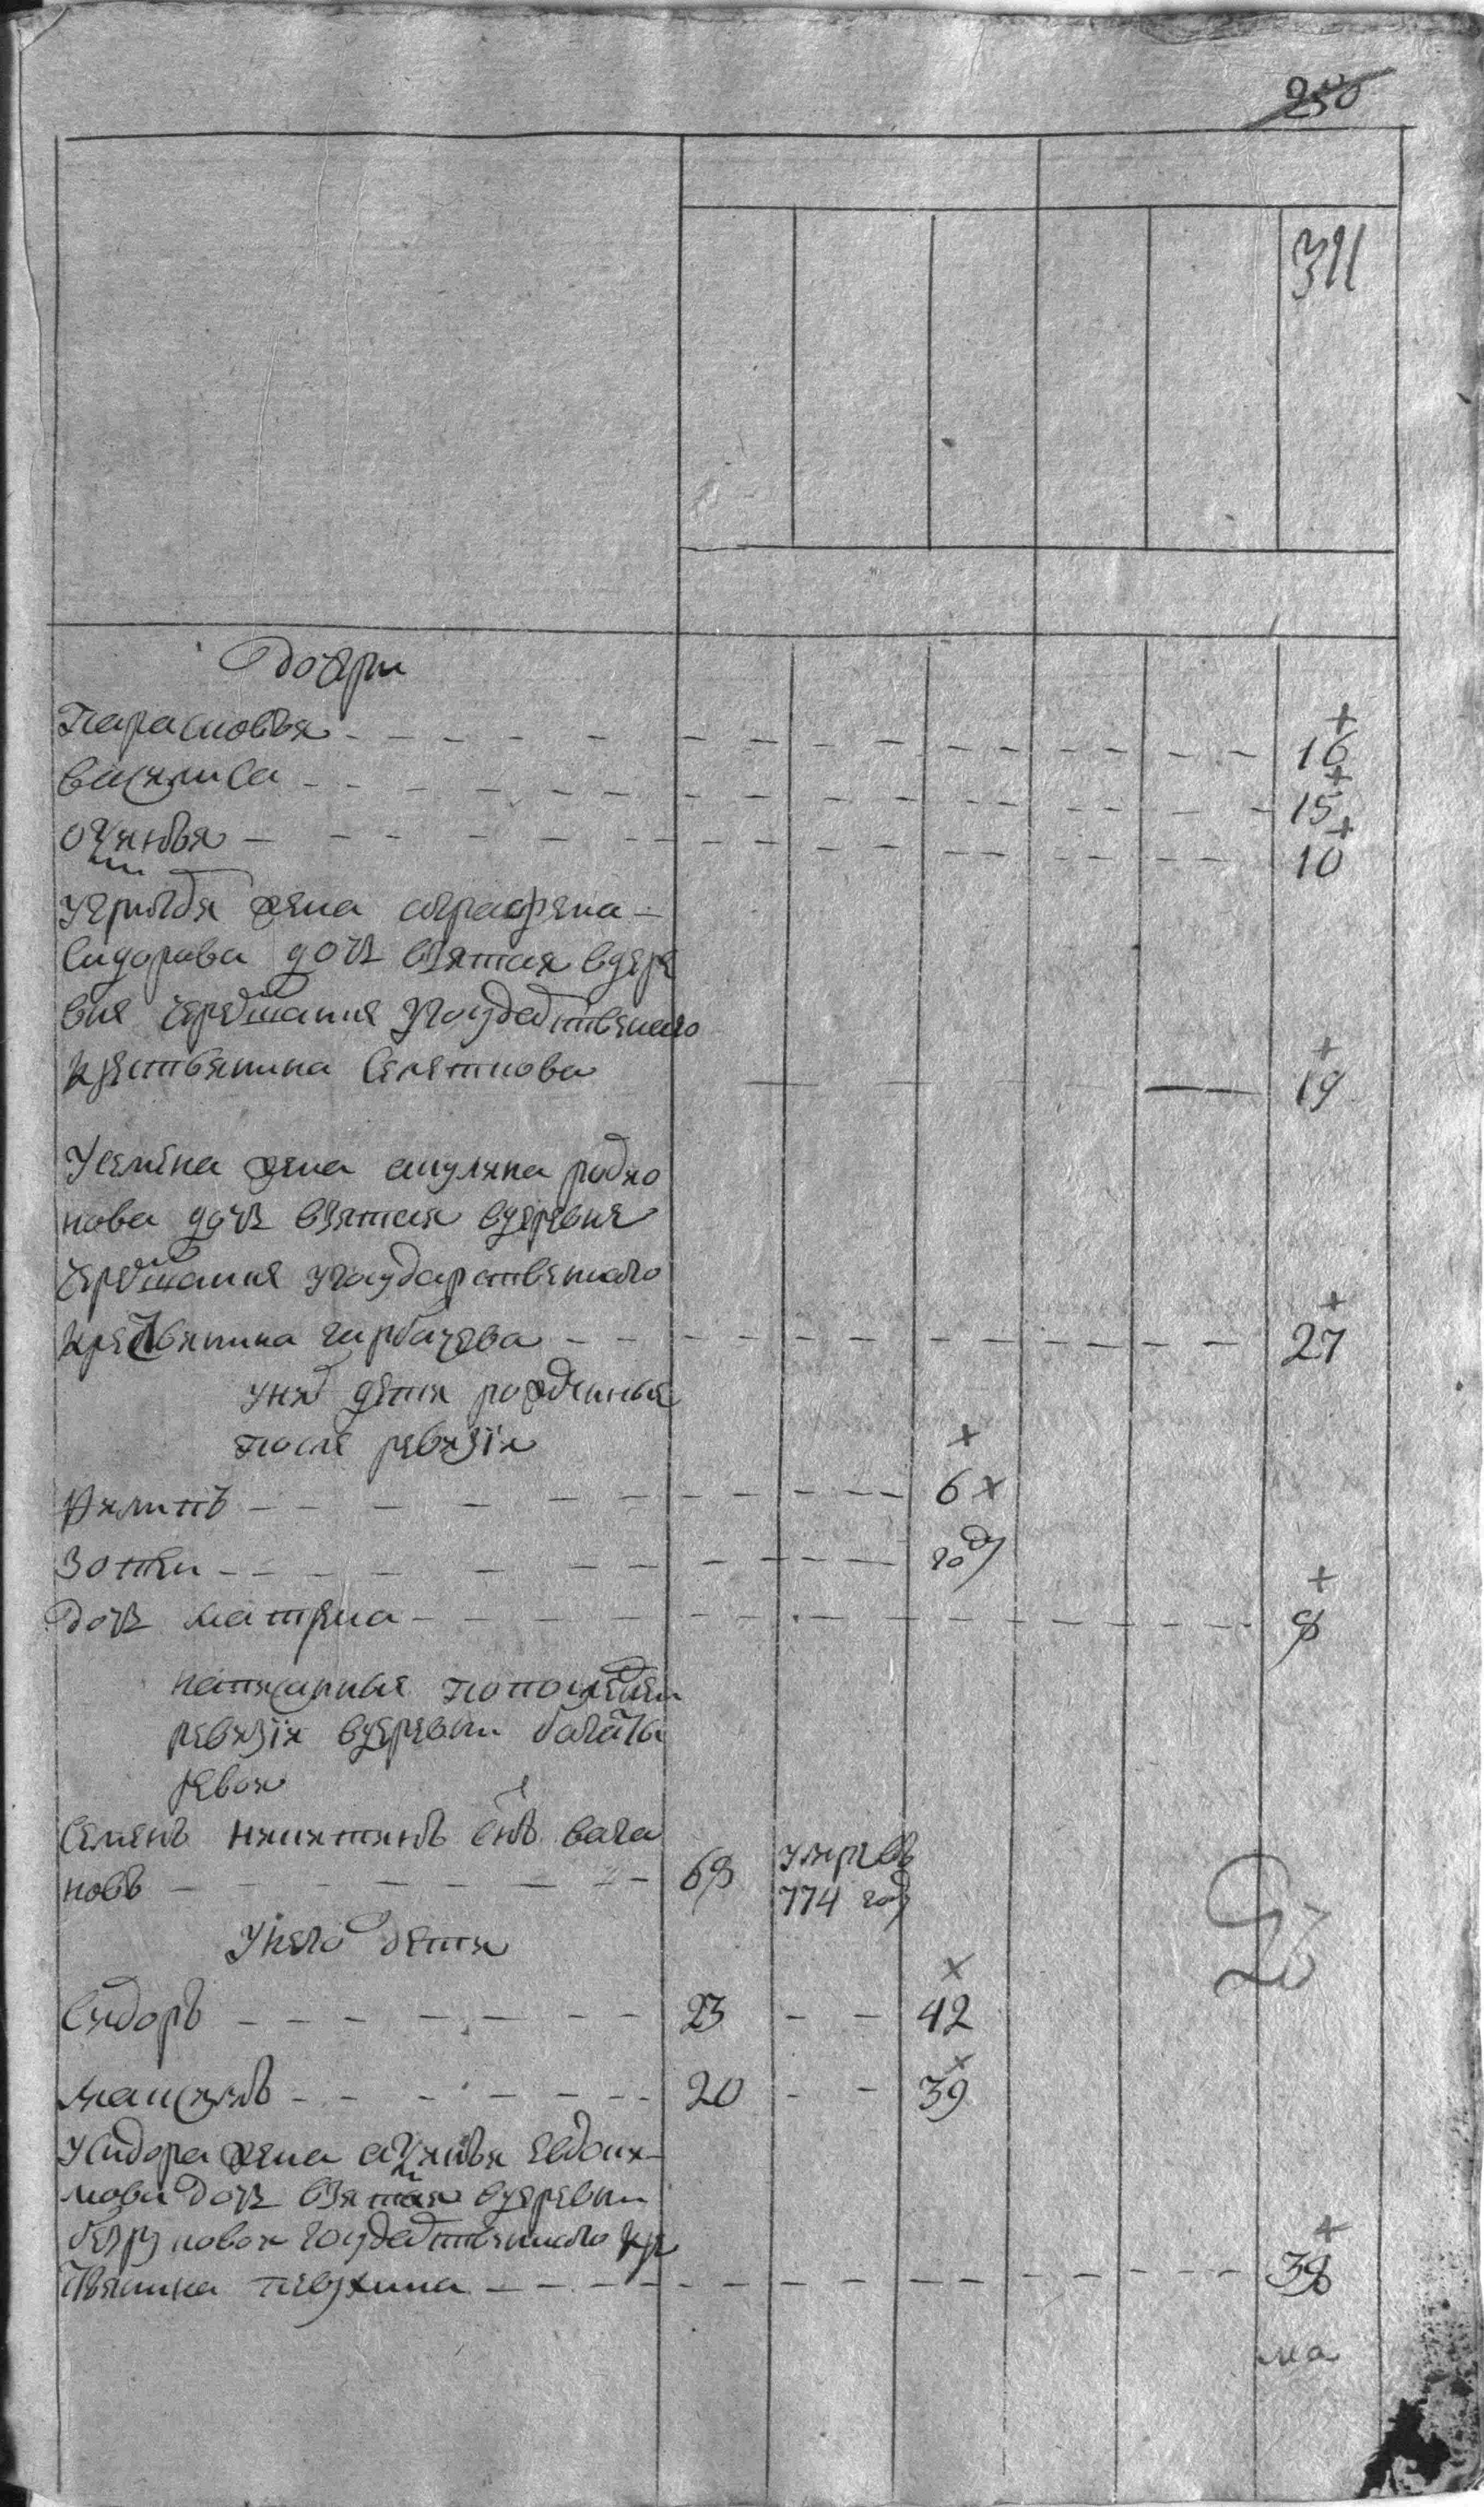 250
311
дочери
Парасковья - - - 16
василиса - - - 15
офимья - - - 10
жена аграфена
сидорова дочь взятая вдере
вне государственнаго
крестьянина Селеткова 19
Усемена жена акулина родио
нова дочь взятая вдеревне
угосударственнаго
крестьянина гарбачева - - - 27
уних дети рожденные
после ревизии
Филипъ - - - 6
Зотеи - - - году
дочь матрена - - - 8
написанные попоследнеи
ревизии вдеревни богаты
ревои
Семенъ никитинъ снъ вага
новъ - - - 68 умре въ
774 году
Унего дети
Сидоръ - - - 23 - - 42
максимъ - - - 20 - - 39
Усидора жена афимья евдоки
мова дочь взятая вдеревни
безруковои государственнаго кре
стьянина певухина - - - 38